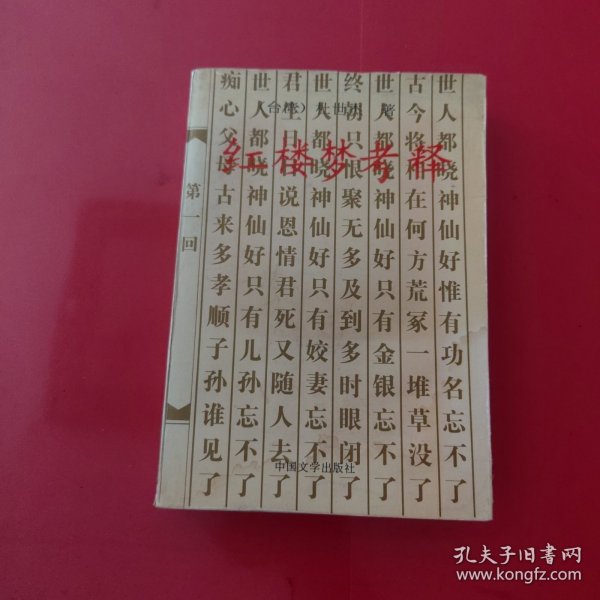 (台湾) 杜世杰 著
红楼梦考释
世人都晓神仙好惟有功名忘不了
古今将相在何方荒冢一堆草没了
世人都晓神仙好只有金银忘不了
终朝只恨聚无多及到多时眼闭了
世人都晓神仙好只有姣妻忘不了
君生日日说恩情君死又随人去了
世人都晓神仙好只有儿孙忘不了
痴心父母古来多孝顺子孙谁见了
第一回
中国文学出版社
孔夫子旧书网
www.kongfz.com